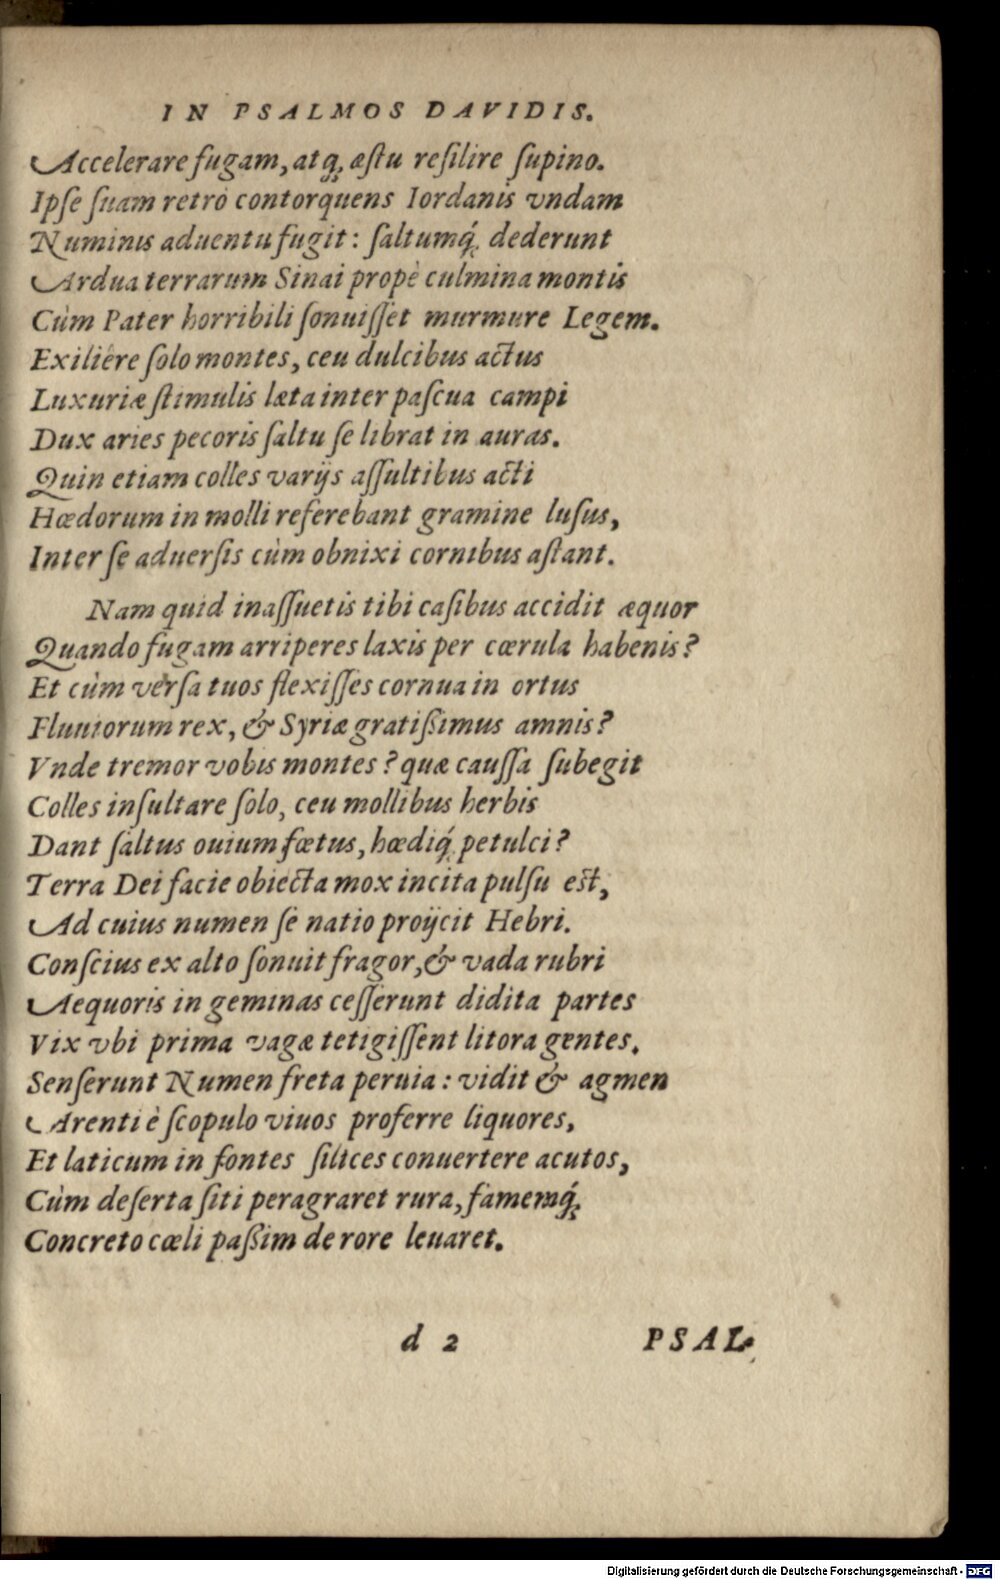 IN PSALMOS DAVIDIS.
Accelerare fugam, atq́; æstu resilire supino.
Ipse suam retrò contorquens Iordanis vndam
Numinis aduentu fugit: saltumq́; dederunt
Ardua terrarum Sinai propè culmina montis
Cùm Pater horribili sonuisset murmure Legem.
Exiliêre solo montes, ceu dulcibus actus
Luxuriæ stimulis læta inter pascua campi
Dux aries pecoris saltu se librat in auras.
Quin etiam colles varijs assultibus acti
Hœdorum in molli referebant gramine lusus,
Inter se aduersis cùm obnixi cornibus astant.
Nam quid inassuetis tibi casibus accidit æquor
Quando fugam arriperes laxis per cœrula habenis?
Et cùm versa tuos flexisses cornua in ortus
Fluuiorum rex, & Syriæ gratißimus amnis?
Vnde tremor vobis montes? quæ caussa subegit
Colles insultare solo, ceu mollibus herbis
Dant saltus ouium fœtus, hœdiq́; petulci?
Terra Dei facie obiecta mox incita pulsu est,
Ad cuius numen se natio proijcit Hebri.
Conscius ex alto sonuit fragor, & vada rubri
Aequoris in geminas cesserunt didita partes
Vix vbi prima vagæ tetigissent litora gentes.
Senserunt Numen freta peruia: vidit & agmen
Arenti è scopulo viuos proferre liquores,
Et laticum in fontes silices conuertere acutos,
Cùm deserta siti peragraret rura, famemq́;
Concreto cœli paßim de rore leuaret.
d 2 PSAL.
Digitalisierung gefördert durch die Deutsche Forschungsgemeinschaft - DFG